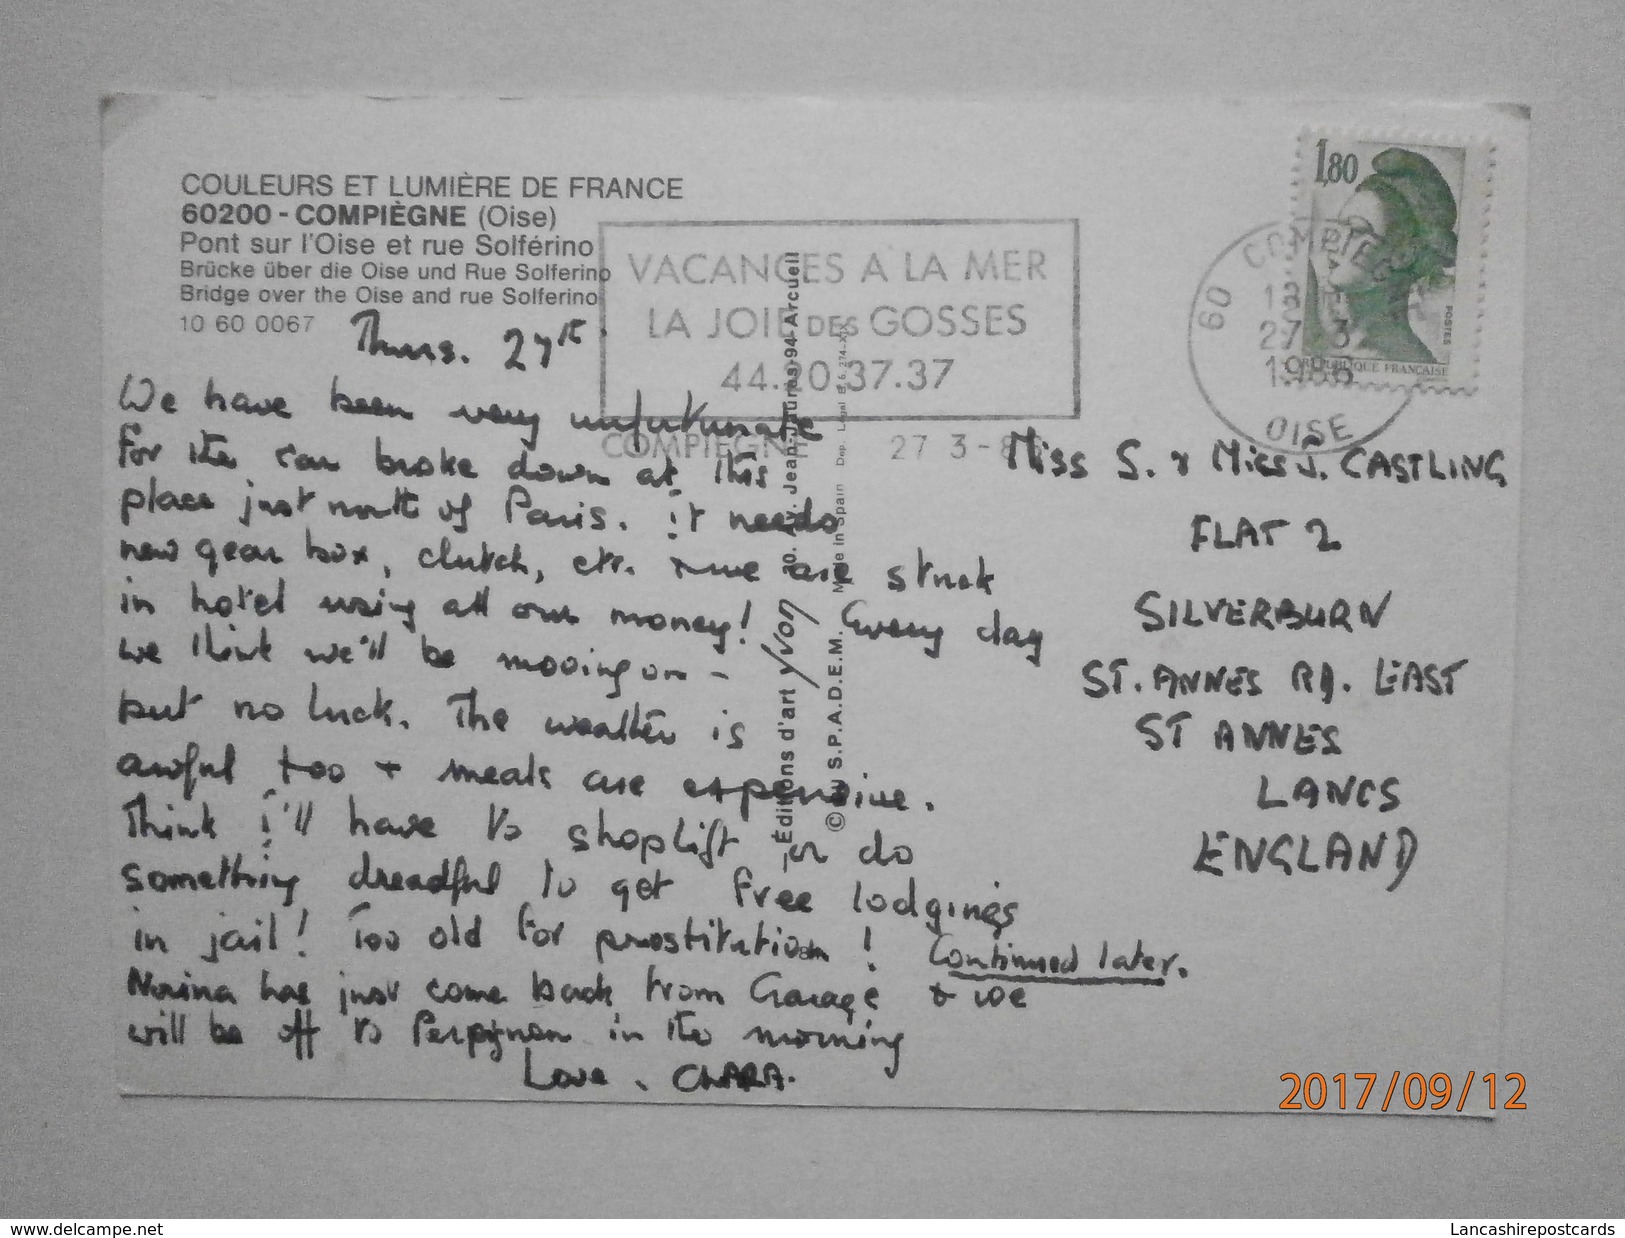 COULEURS ET LUMIÈRE DE FRANCE
60200 - COMPIÈGNE (Oise)
Pont sur l'Oise et rue Solférino
Brücke über die Oise und Rue Solferino
Bridge over the Oise and rue Solferino
10 60 0067
VACANCES A LA MER
LA JOIE DES GOSSES
44.20.37.37
COMPIEGNE 27 3-8
1,80
POSTES
REPUBLIQUE FRANCAISE
60 COMPIEGNE
27 3
1986
OISE
Thurs. 27th.
We have been very unfortunate
for the car broke down at this
place just north of Paris. it needs
new gear box, clutch, etc. & we are stuck
in hotel using all our money! Every day
we think we'll be mooing on -
but no luck. The weather is
awful too + meals are expensive.
Think I'll have to shoplift or do
something dreadful to get free lodgings
in jail! Too old for prostitution! Continued later.
Norina has just come back from Garage & we
will be off to Perpignan in the morning
Love. CLARA.
Éditions d'art yvon
Av. Jean-Jaurès-94-Arcueil
© S.P.A.D.E.M.
Made in Spain Dep. Legal
Miss S. & Miss J. CASTLING
FLAT 2
SILVERBURN
ST. ANNES RD. EAST
ST ANNES
LANCS
ENGLAND
2017/09/12
www.delcampe.net
Lancashirepostcards